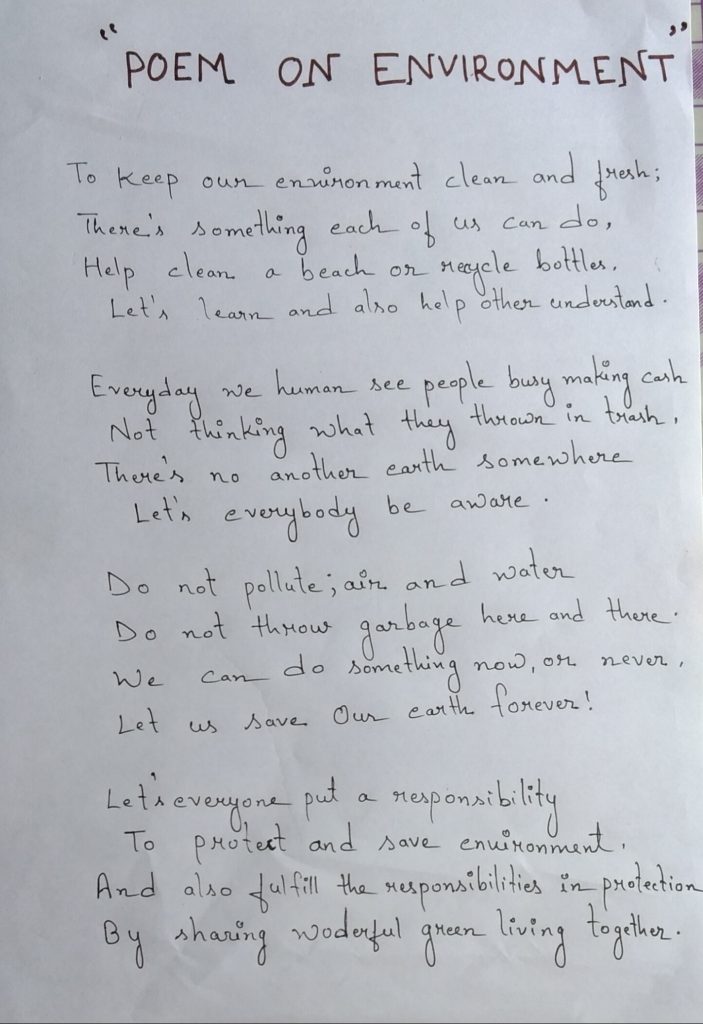 "POEM ON ENVIRONMENT"
To keep our environment clean and fresh;
There's something each of us can do,
Help clean a beach or recycle bottles.
Let's learn and also help other understand.
Everyday we human see people busy making cash
Not thinking what they thrown in trash,
There's no another earth somewhere
Let's everybody be aware.
Do not pollute; air and water
Do not throw garbage here and there.
We can do something now, or never,
Let us save Our earth forever!
Let's everyone put a responsibility
To protect and save environment.
And also fulfill the responsibilities in protection
By sharing woderful green living together.